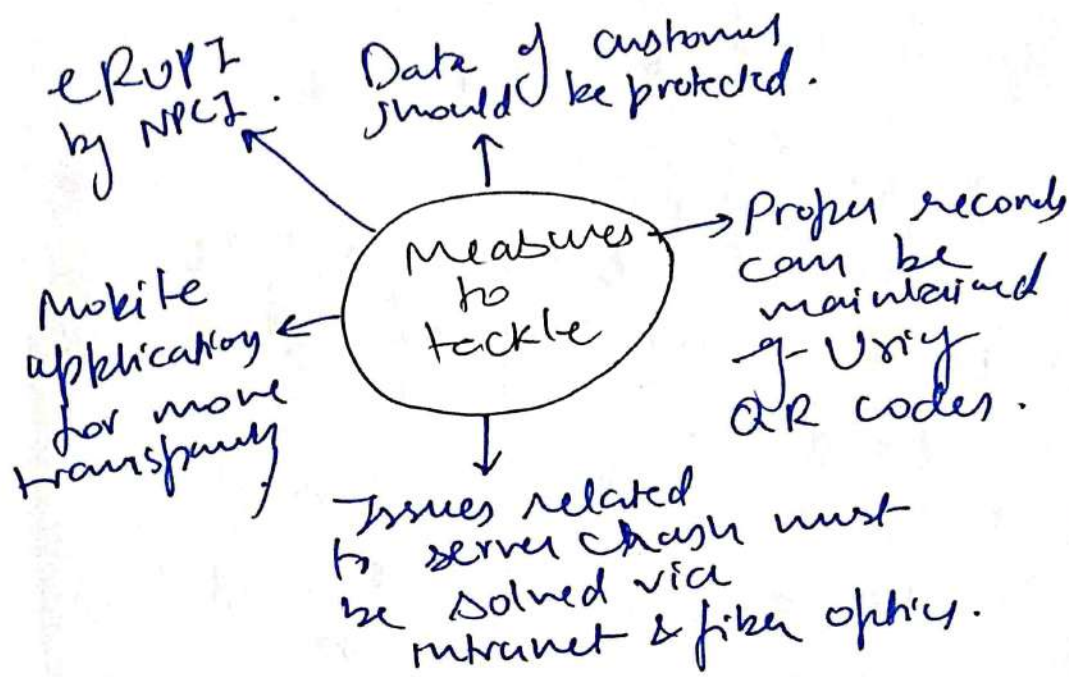 eRUPI
by NPCI.
Data of customers
should be protected.
Measures
to
tackle
Proper records
can be
maintained
Using
QR codes.
Mobile
application
for more
transparency
Issues related
to server crash must
be solved via
intranet & fiber optics.